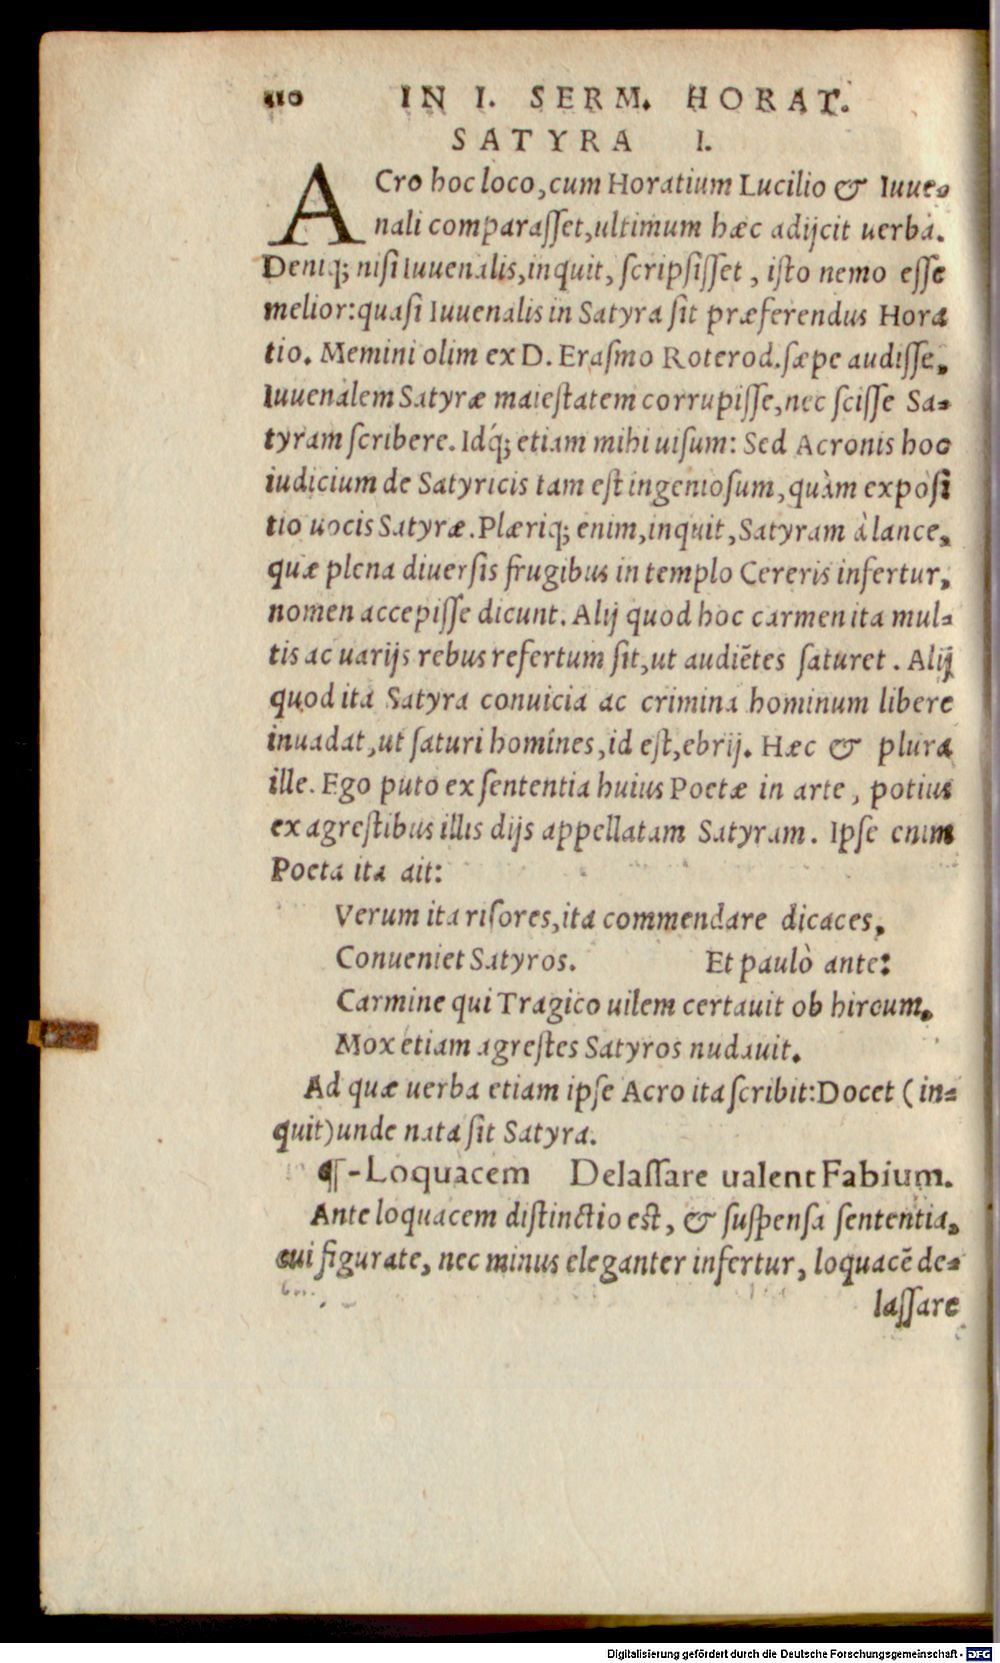 110 IN I. SERM. HORAT.
SATYRA I.
ACro hoc loco, cum Horatium Lucilio & Iuue-
nali comparaſſet, ultimum hæc adijcit uerba.
Deniq; niſi Iuuenalis, inquit, ſcripſiſſet, iſto nemo eſſe
melior: quaſi Iuuenalis in Satyra ſit præferendus Hora
tio. Memini olim ex D. Eraſmo Roterod. ſæpe audiſſe,
Iuuenalem Satyræ maieſtatem corrupiſſe, nec ſciſſe Sa-
tyram ſcribere. Idq́; etiam mihi uiſum: Sed Acronis hoc
iudicium de Satyricis tam eſt ingenioſum, quàm expoſi
tio uocis Satyræ. Plæriq; enim, inquit, Satyram à lance,
quæ plena diuerſis frugibus in templo Cereris infertur,
nomen accepiſſe dicunt. Alij quod hoc carmen ita mul-
tis ac uarijs rebus refertum ſit, ut audiētes ſaturet. Alij
quod ita Satyra conuicia ac crimina hominum libere
inuadat, ut ſaturi homines, id eſt, ebrij. Hæc & plura
ille. Ego puto ex ſententia huius Poetæ in arte, potius
ex agreſtibus illis dijs appellatam Satyram. Ipſe enim
Poeta ita ait:
Verum ita riſores, ita commendare dicaces,
Conueniet Satyros. Et paulò ante:
Carmine qui Tragico uilem certauit ob hircum.
Mox etiam agreſtes Satyros nudauit.
Ad quæ uerba etiam ipſe Acro ita ſcribit: Docet (in-
quit) unde nata ſit Satyra.
¶ -Loquacem Delaſſare ualent Fabium.
Ante loquacem diſtinctio eſt, & ſuſpenſa ſententia,
cui figurate, nec minus eleganter infertur, loquacē de-
laſſare
Digitalisierung gefördert durch die Deutsche Forschungsgemeinschaft - DFG